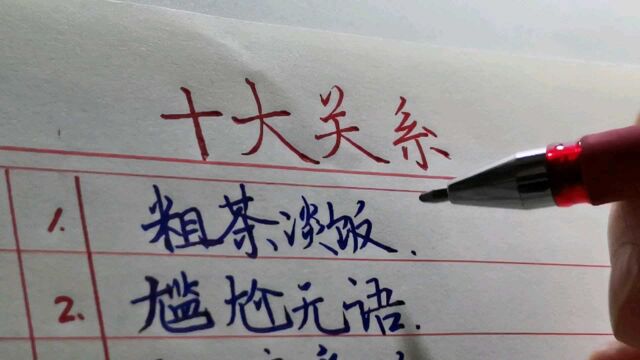 十大关系
1. 粗茶淡饭.
2. 尴尬无语.